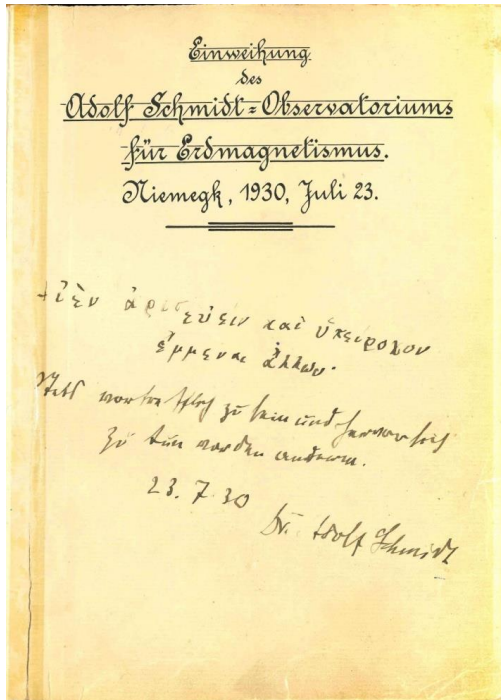 Einweihung
des
Adolf Schmidt=Observatoriums
für Erdmagnetismus.
Niemegk, 1930, Juli 23.
αἰὲν ἀριστεύειν καὶ ὑπείροχον
ἔμμεναι ἄλλων.
Stets vortrefflich zu sein und hervor sich
zu tun vor den andern.
23. 7. 30
Dr. Adolf Schmidt